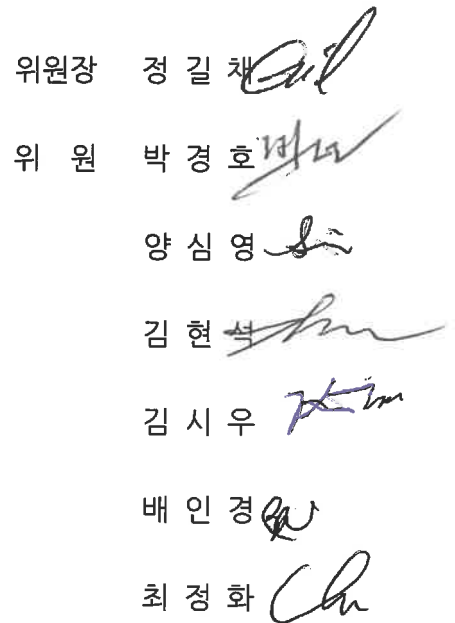 위원장 정 길 채
위 원 박 경 호
양 심 영
김 현 석
김 시 우
배 인 경
최 정 화